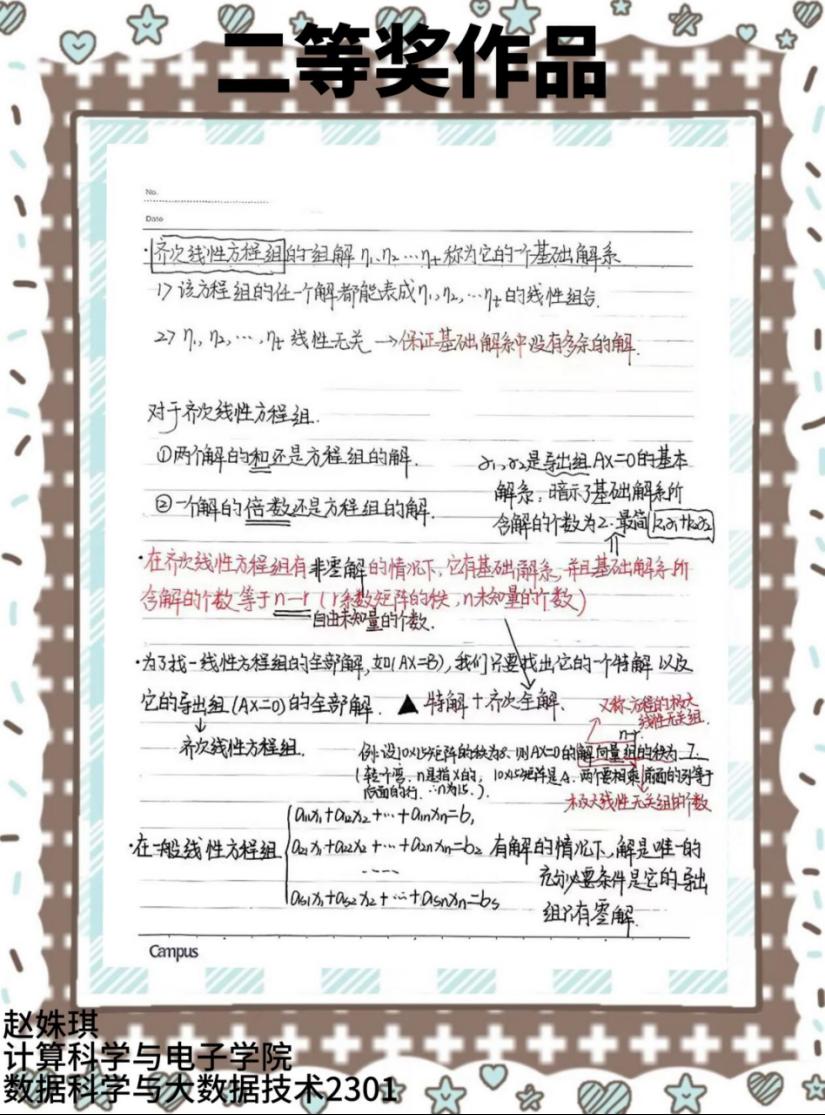 二等奖作品
No.
Date
·齐次线性方程组的一组解 η₁、η₂ … ηₜ 称为它的一个基础解系
1> 该方程组的任一个解都能表成 η₁, η₂, … ηₜ 的线性组合.
2> η₁, η₂, …, ηₜ 线性无关 → 保证基础解系中没有多余的解.
对于齐次线性方程组.
①两个解的和还是方程组的解.
②一个解的倍数还是方程组的解.
是导出组 AX=0的基本
解系, 暗示了基础解系所
含解的个数为2. 最简
·在齐次线性方程组有非零解的情况下, 它有基础解系, 并且基础解系所
含解的个数等于 n-r (r系数矩阵的秩, n未知量的个数)
自由未知量的个数.
·为了找一线性方程组的全部解, 如(AX=B), 我们只要找出它的一个特解 以及
它的导出组(AX=0)的全部解. ▲ 特解+齐次全解.
又称方程的极大
线性无关组.
n-r
齐次线性方程组.
例: 设10×15矩阵的秩为8. 则AX=0的解向量组的秩为 7.
(转个弯, n是指X的, 10×15矩阵是A, 两个要相乘, 前面的列等于
后面的行. ∴n为15.)
极大线性无关组的个数
·在一般线性方程组
a₁₁x₁+a₁₂x₂+…+a₁ₙxₙ=b₁
a₂₁x₁+a₂₂x₂+…+a₂ₙxₙ=b₂
----
aₛ₁x₁+aₛ₂x₂+…+aₛₙxₙ=bₛ
有解的情况下, 解是唯一的
充分必要条件是它的导出
组只有零解.
Campus
赵姝琪
计算科学与电子学院
数据科学与大数据技术2301